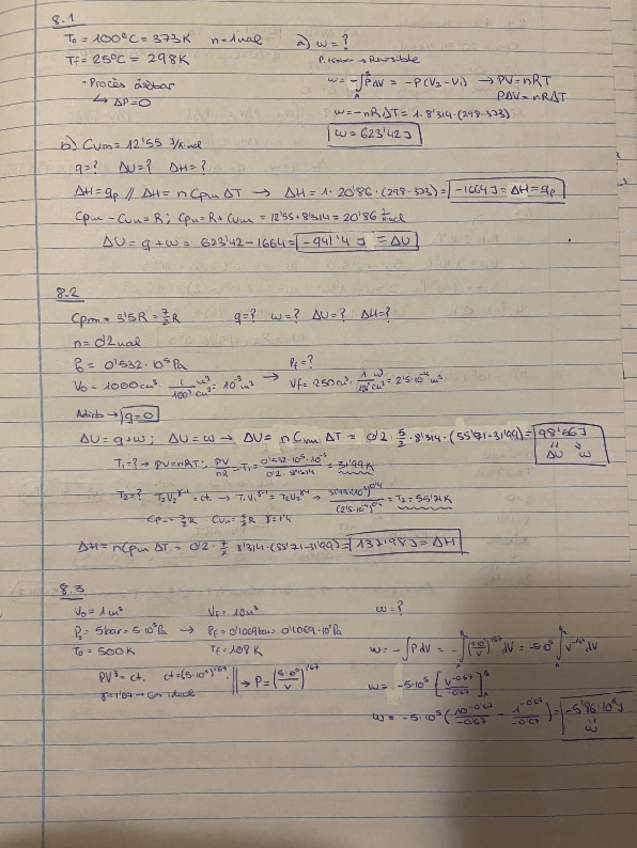 8.1
T₀ = 100ºC = 373K n = 1mol a) w = ?
T_f = 25ºC = 298K
P. isobar → Reversible
· Procés isobar
↳ ΔP = 0
w = -∫PdV = -P(V₂-V₁) → PV = nRT
PΔV = nRΔT
w = -nRΔT = 1·8'314·(298-373)
w = 623'42J
b) Cvm = 12'55 J/K·mol
q = ? ΔU = ? ΔH = ?
ΔH = qp // ΔH = nCpmΔT → ΔH = 1·20'86·(298-373) = -1664J = ΔH = qp
Cpm - Cvm = R; Cpm = R + Cvm = 12'55 + 8'314 = 20'86 J/Kmol
ΔU = q + w = 623'42 - 1664 = -941'4 J = ΔU
8.2
Cpm = 3'5R = 7/2 R q = ? w = ? ΔU = ? ΔH = ?
n = 0'2mol
P₀ = 0'532·10⁵Pa P_f = ?
V₀ = 1000cm³ · 1 m³/100³ cm³ = 10⁻³m³ → V_f = 250cm³ · 1 m³/100³ cm³ = 2'5·10⁻⁴m³
→ q = 0
ΔU = q + w; ΔU = w → ΔU = nCvmΔT = 0'2 · 5/2 · 8'314 · (55'71-31'99) = 98'56J = ΔU = w
T₁ = ? → PV = nRT; PV/nR = T₁ = 0'532·10⁵·10⁻³/0'2·8'314 = 31'99K
T₂ = ? T₂V₂^γ-1 = ct. → T₁V₁^γ-1 = T₂V₂^γ-1 → 31'99(10⁻³)^0'4/(2'5·10⁻⁴)^0'4 = T₂ = 55'71K
Cpm = 7/2 R Cvm = 5/2 R γ = 1'4
ΔH = nCpmΔT = 0'2 · 7/2 · 8'314 · (55'71-31'99) = 137'98J = ΔH
8.3
V₀ = 1m³ V_f = 10m³ w = ?
P₀ = 5bar = 5·10⁵Pa → P_f = 0'1069bar = 0'1069·10⁵Pa
T₀ = 500K T_f = 109K
w = -∫PdV = -∫(5·10⁵/V)^1'67 dV = -5·10⁵∫V^-1'67 dV
PV^γ = ct. ct = (5·10⁵)^1'67 → P = (5·10⁵/V)^1'67
γ = 1'67 → Gas ideal
w = -5·10⁵ [V^-0'67/-0'67]
w = -5·10⁵ (10^-0'67/-0'67 - 1^-0'67/-0'67) = -5'86·10⁵J = w